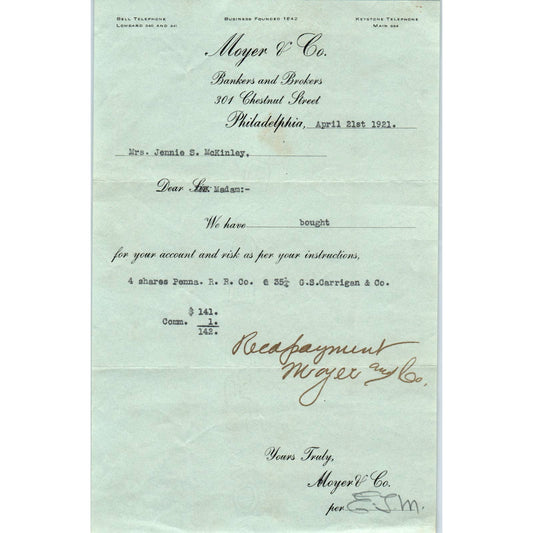 BELL TELEPHONE BUSINESS FOUNDED 1842 KEYSTONE TELEPHONE
LOMBARD 340 AND 341 MAIN
Moyer & Co.
Bankers and Brokers
301 Chestnut Street
Philadelphia, April 21st 1921.
Mrs. Jennie S. McKinley,
Dear Sir: Madam:-
We have bought
for your account and risk as per your instructions,
4 shares Penna. R. R. Co. @ 35¼ G.S.Carrigan & Co.
$ 141.
Comm. 1.
142.
Recd payment
Moyer and Co.
Yours Truly,
Moyer & Co.
per E.J.M.